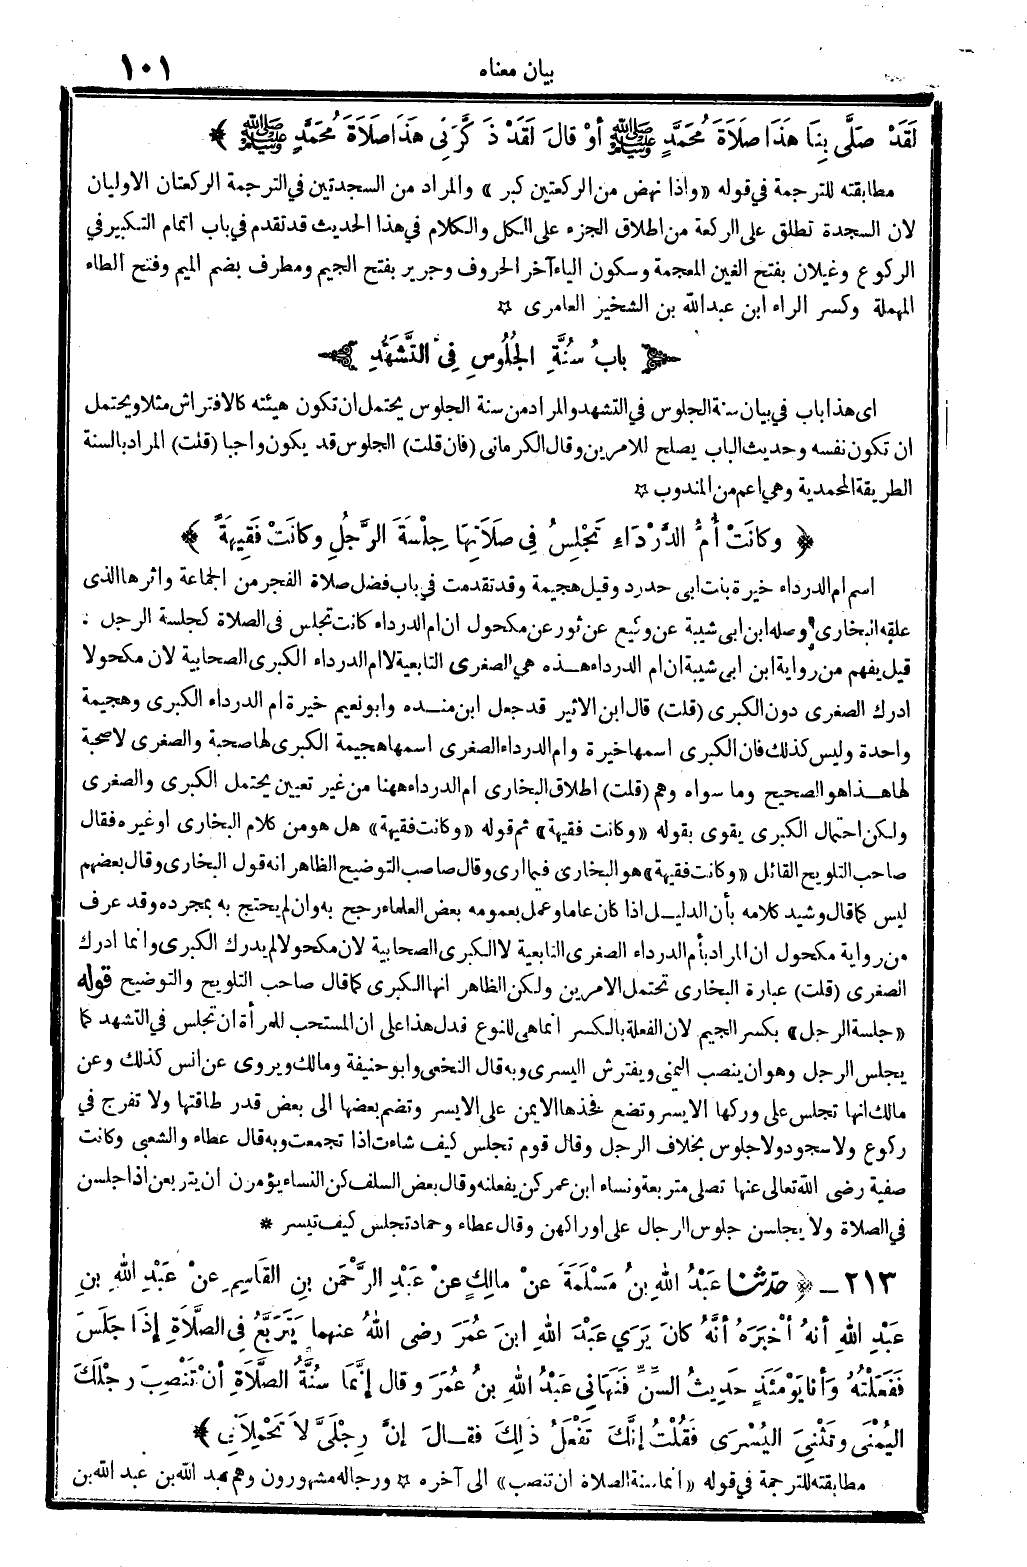 بيان معناه ١٠١
لَقَدْ صَلَّى بِنَا هَذَا صَلَاةَ مُحَمَّدٍ ﷺ أوْ قالَ لَقَدْ ذَكَّرَنِي هَذَا صَلَاةَ مُحَمَّدٍ ﷺ ﴾
مطابقته للترجمة في قوله «واذا نهض من الركعتين كبر» والمراد من السجدتين في الترجمة الركعتان الاوليان
لان السجدة تطلق على الركعة من اطلاق الجزء على الكل والكلام في هذا الحديث قد تقدم في باب اتمام التكبير في
الركوع وغيلان بفتح الغين المعجمة وسكون الياء آخر الحروف وجرير بفتح الجيم ومطرف بضم الميم وفتح الطاء
المهملة وكسر الراء ابن عبدالله بن الشخير العامرى ☆
باب سُنَّةِ الجُلُوسِ فِي التَّشَهُّدِ
اى هذا باب في بيان سنة الجلوس في التشهد والمراد من سنة الجلوس يحتمل ان تكون هيئته كالافتراش مثلا ويحتمل
ان تكون نفسه وحديث الباب يصلح للامرين وقال الكرمانى (فان قلت) الجلوس قد يكون واجبا (قلت) المراد بالسنة
الطريقة المحمدية وهي اعم من المندوب ☆
﴿ وكانَتْ أُمُّ الدَّرْدَاءِ تَجْلِسُ فِي صَلَاتِهَا جِلْسَةَ الرَّجُلِ وكانَتْ فَقِيهَةً ﴾
اسم ام الدرداء خيرة بنت ابى حدرد وقيل هجيمة وقد تقدمت في باب فضل صلاة الفجر من الجماعة واثرها الذى
علقه البخارى وصله ابن ابى شيبة عن وكيع عن ثور عن مكحول ان ام الدرداء كانت تجلس فى الصلاة كجلسة الرجل :
قيل يفهم من رواية ابن ابى شيبة ان ام الدرداء هذه هي الصغرى التابعية لا ام الدرداء الكبرى الصحابية لان مكحولا
ادرك الصغرى دون الكبرى (قلت) قال ابن الاثير قد جعل ابن منده وابو نعيم خيرة ام الدرداء الكبرى وهجيمة
واحدة وليس كذلك فان الكبرى اسمها خيرة وام الدرداء الصغرى اسمها هجيمة الكبرى لها صحبة والصغرى لا صحبة
لها هذا هو الصحيح وما سواه وهم (قلت) اطلاق البخارى ام الدرداء ههنا من غير تعيين يحتمل الكبرى والصغرى
ولكن احتمال الكبرى يقوى بقوله «وكانت فقيهة» ثم قوله «وكانت فقيهة» هل هو من كلام البخارى او غيره فقال
صاحب التلويح القائل «وكانت فقيهة» هو البخارى فيما ارى وقال صاحب التوضيح الظاهر انه قول البخارى وقال بعضهم
ليس كما قال وشيد كلامه بأن الدليل اذا كان عاما وعمل بعمومه بعض العلماء رجح به وان لم يحتج به بمجرده وقد عرف
من رواية مكحول ان المراد بأم الدرداء الصغرى التابعية لا الكبرى الصحابية لان مكحولا لم يدرك الكبرى وانما ادرك
الصغرى (قلت) عبارة البخارى تحتمل الامرين ولكن الظاهر انها الكبرى كما قال صاحب التلويح والتوضيح قوله
«جلسة الرجل» بكسر الجيم لان الفعلة بالكسر انما هى للنوع فدل هذا على ان المستحب للمرأة ان تجلس في التشهد كما
يجلس الرجل وهو ان ينصب اليمنى ويفترش اليسرى وبه قال النخعى وابو حنيفة ومالك ويروى عن انس كذلك وعن
مالك انها تجلس على وركها الايسر وتضع فخذها الايمن على الايسر وتضم بعضها الى بعض قدر طاقتها ولا تفرج في
ركوع ولا سجود ولا جلوس بخلاف الرجل وقال قوم تجلس كيف شاءت اذا تجمعت وبه قال عطاء والشعبى وكانت
صفية رضى الله تعالى عنها تصلى متربعة ونساء ابن عمر كن يفعلنه وقال بعض السلف كن النساء يؤمرن ان يتربعن اذا جلسن
في الصلاة ولا يجلسن جلوس الرجال على اوراكهن وقال عطاء وحماد تجلس كيف تيسر *
٢١٣ - ﴿ حَدَّثَنَا عَبْدُ اللهِ بنُ مَسْلَمَةَ عَنْ مالِكٍ عنْ عَبْدِ الرَّحْمَنِ بنِ القَاسِمِ عنْ عَبْدِ اللهِ بنِ
عَبْدِ اللهِ أنهُ أخْبَرَهُ أنَّهُ كانَ يَرَي عَبْدَ اللهِ ابنَ عُمَرَ رضى اللهُ عنهما يَتَرَبَّعُ فِي الصَّلَاةِ إذَا جَلَسَ
فَفَعَلْتُهُ وَأنا يَوْمَئِذٍ حَدِيثُ السِّنِّ فَنَهَانِي عَبْدُ اللهِ بنُ عُمَرَ وقال إنَّمَا سُنَّةُ الصَّلَاةِ أنْ تَنْصِبَ رِجْلَكَ
اليُمْنَى وتَثْنِيَ اليُسْرَى فَقُلْتُ إنَّكَ تَفْعَلُ ذَلِكَ فقالَ إنَّ رِجْلَيَّ لَا تَحْمِلَانِي ﴾
مطابقته للترجمة في قوله «انما سنة الصلاة ان تنصب» الى آخره ☆ ورجاله مشهورون وهم عبد الله بن عبد الله بن